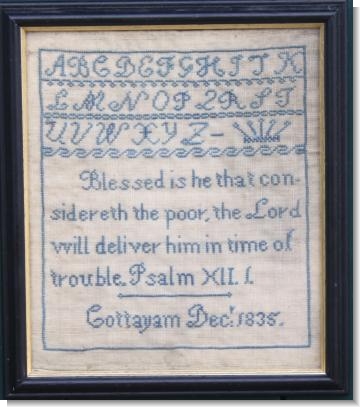 ABCDEFGHIJK
LMNOPQRST
UVWXYZ-
Blessed is he that con-
sidereth the poor, the Lord
will deliver him in time of
trouble. Psalm XLI. I.
Cottayam Decr. 1835.